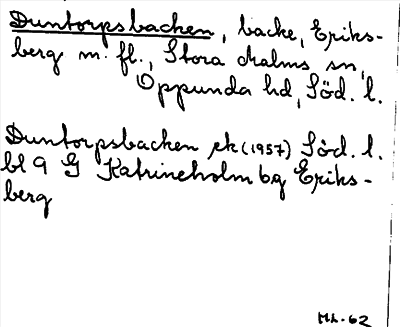 Duntorpsbacken, backe, Eriks-
berg m. fl., Stora Malms sn,
Oppunda hd, Söd. l.
Duntorpsbacken ek (1957) Söd. l.
bl 9 G Katrineholm bg Eriks-
berg
M.L. - 62